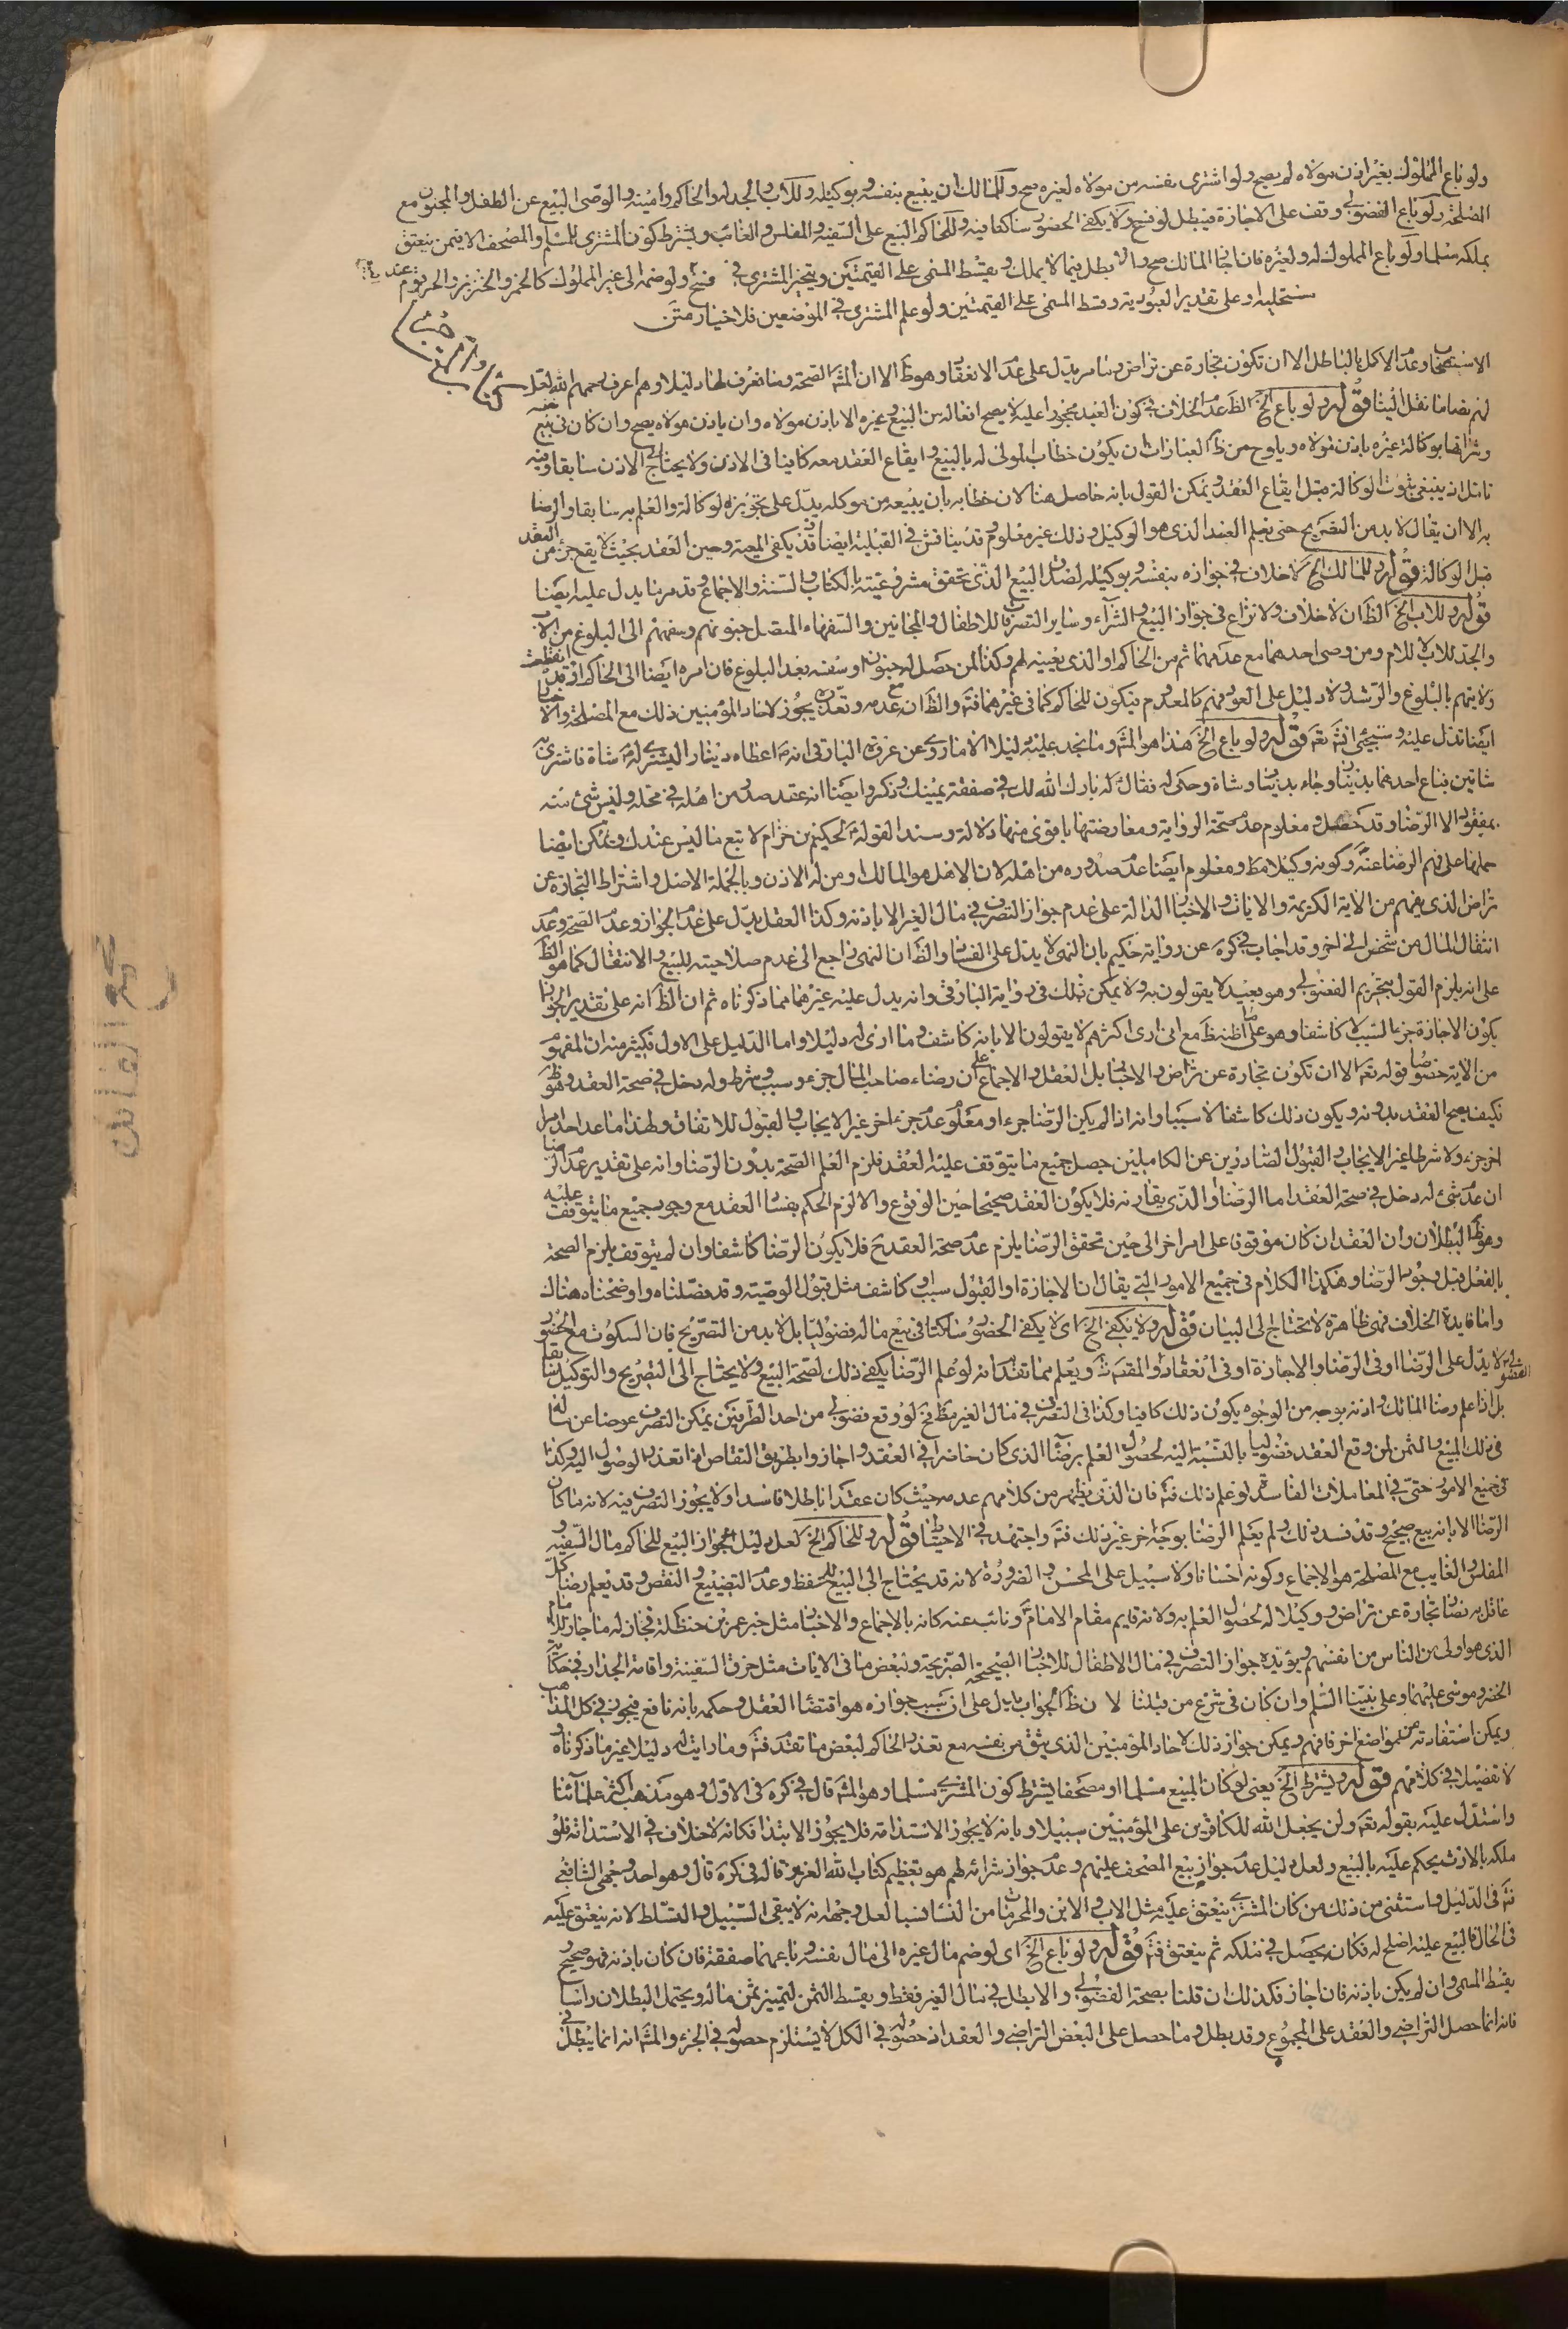 ولو باع المملوك بغير اذن مولاه لم يصح ولو اشترى نفسه من مولاه لغيره صح وللمالك ان يبيع بنفسه وبوكيله وللاب والجد له والحاكم وامينه والوصى البيع عن الطفل والمجنون مع
المصلحة ولو باع الفضولي وقف على الاجازة فيبطل لو فسخ ولا يكفي الحضور ساكتا فيه وللحاكم البيع على السفيه والمفلس والغائب ويشترط كون المشترى للمسلم والمصحف الا فيمن ينعتق
بملكه مسلما ولو باع المملوك له ولغيره فان اجاز المالك صح والا بطل فيما لا يملك ويقسط المسمى على القيمتين ويتخير المشترى في فسخ ولو ضمه الى غير المملوك كالحر والخنزير والخمر يقوم عند
مستحليه وعلى تقدير العبودية وقسط المسمى على القيمتين ولو علم المشترى في الموضعين فلا خيار متن
الاستصحاب وعدم الاكل بالباطل الا ان تكون تجارة عن تراض وما مر يدل على عدم الانعقاد وهو ظ الا ان المش الصحة وما نعرف لها دليلا وهم اعرف رحمهم الله لعل
لهم نصا ما نقل الينا قوله ولو باع الخ الظ عدم الخلاف في كون العبد محجورا عليه لا يصح افعاله من البيع وغيره الا باذن مولاه وان باذن مولاه يصح وان كان في بيع نفسه
وشرائها بوكالة غيره باذن مولاه ويلوح من ظ العبارات ان يكون خطاب المولى له بالبيع وايقاع العقد معه كافيا في الاذن ولا يحتاج الى الاذن سابقا وفيه
تامل اذ ينبغي ثبوت الوكالة قبل ايقاع العقد ويمكن القول بانه حاصل هنا لان خطابه بان يبيعه من موكله يدل على تجويزه لوكالته والعلم به سابقا والرضا
به الا ان يقال لا بد من التصريح حتى يعلم العبد الذى هو الوكيل وذلك غير معلوم وقد يناقش في القبلية ايضا فقد يكفى المعية وحين العقد بحيث لا يقع جزء من العقد
قبل الوكالة قوله وللمالك الخ لا خلاف في جوازه بنفسه وبوكيله لصدق البيع الذي تحقق مشروعيته بالكتاب والسنة والاجماع وقد مر ما يدل عليه ايضا
قوله وللاب الخ الظ ان لا خلاف ولا نزاع في جواز البيع والشراء وساير التصرفات للاطفال والمجانين والسفهاء المتصل جنونهم وسفههم الى البلوغ من الاب
والجد للاب لا للام ومن وصى احدهما مع عدمهما ثم من الحاكم او الذى يعينه لهم وكذا لمن حصل له جنون او سفه بعد البلوغ فان امره ايضا الى الحاكم اذ قد انقطعت
ولايتهم بالبلوغ والرشد ولا دليل على العود فهم كالمعدوم فيكون للحاكم كما في غيرهما فتم والظ ان مع عدمه وتعذره يجوز لاحاد المؤمنين ذلك مع المصلحة والاخبار
ايضا تدل عليه وستجيئ انش تعم قوله ولو باع الخ هذا هو المش وما نجد عليه دليلا الا ما روى عن عروة البارقى انه ص اعطاه دينارا ليشترى له شاة فاشترى به
شاتين فباع احدهما بدينار وجاء بدينار وشاة وحكى له فقال له بارك الله لك في صفقة يمينك وذكروا ايضا انه عقد صدر من اهله في محله وليس شئ منه
بمفقود الا الرضا وقد حصل ومعلوم عدم صحة الرواية ومعارضتها باقوى منها دلالة وسندا لقوله ص لحكيم بن حزام لا تبع ما ليس عندك ويمكن ايضا
حملها على فهم الرضا عنه ص وكونه وكيلا مط ومعلوم ايضا عدم صدوره من اهله لان الاهل هو المالك او من له الاذن وبالجملة الاصل واشتراط التجارة عن
تراض الذى يفهم من الاية الكريمة والايات والاخبار الدالة على عدم جواز التصرف في مال الغير الا باذنه وكذا العقل يدل على عدم الجواز وعدم الصحة وعدم
انتقال المال من شخص الى اخر وقد اجاب في كره عن رواية حكيم بان النهى لا يدل على الفساد والظ ان النهى راجع الى عدم صلاحيته للبيع والانتقال كما هو الظ
على انه يلزم القول بتحريم الفضولي وهو بعيد لا يقولون به ولا يمكن ذلك في رواية البارقي وانه يدل عليه غيرهما مما ذكرناه ثم ان الظ انه على تقدير الجواز
يكون الاجازة جزء السبب لا كاشفا وهو على الظ ظ مع انى ارى اكثرهم لا يقولون الا بانه كاشف وما ارى له دليلا واما الدليل على الاول فكثير منه ان المفهوم
من الاية خصوصا قوله تعم الا ان تكون تجارة عن تراض والاخبار بل العقل والاجماع على ان رضاء صاحب المال جزء وسبب وشرط وله دخل في صحة العقد وهو ظ
فكيف يصح العقد بدونه ويكون ذلك كاشفا لا سببا وانه اذا لم يكن الرضا جزءا ومعلوم عدم جزء اخر غير الايجاب والقبول للاتفاق ولهذا ما عد احد امرا
اخر جزء ولا شرطا غير الايجاب والقبول الصادرين عن الكاملين حصل جميع ما يتوقف عليه العقد فلزم العلم الصحة بدون الرضا وانه على تقدير عدم الرضا
ان عدم شئ له دخل في صحة العقد اما الرضا او الذي يقارنه فلا يكون العقد صحيحا حين الوقوع والا لزم الحكم بفساد العقد مع وجود جميع ما يتوقف عليه
وهو ظ البطلان وان العقد ان كان موقوفا على امر اخر الى حين تحقق الرضا يلزم عدم صحة العقد ح فلا يكون الرضا كاشفا وان لم يتوقف يلزم الصحة
بالفعل قبل وجود الرضا وهكذا الكلام في جميع الامور التي يقال ان الاجازة او القبول سبب او كاشف مثل قبول الوصية وقد فصلناه واوضحناه هناك
واما فايدة الخلاف فهى ظاهرة لا تحتاج الى البيان قوله ولا يكفي الخ اى لا يكفى الحضور ساكتا في بيع ماله فضوليا بل لا بد من التصريح فان السكوت مع الحضور
لا يدل على الرضا او في الرضا والاجازة او في انعقاد والمقدمات ويعلم مما تقدم انه لو علم الرضا يكفى ذلك لصحة البيع ولا يحتاج الى التصريح والتوكيل سابقا
بل اذا علم رضا المالك واذنه بوجه من الوجوه يكون ذلك كافيا وكذا في التصرف في مال الغير مط فح لو وقع فضولي من احد الطرفين يمكن التصرف عوضا عن ماله
في ذلك المبيع والثمن لمن وقع العقد فضوليا بالنسبة اليه لحصول العلم برضا الذى كان حاضرا في العقد واجاز وابطريق التقاص اذا تعذر الوصول اليه وكذا
في جميع الامور حتى في المعاملات الفاسدة لو علم ذلك فتم فان الذي يظهر من كلامهم عدمه حيث كان عقدا باطلا فاسدا ولا يجوز التصرف فيه لانه ما كان
الرضا الا بانه بيع صحيح وقد فسد ذلك ولم يعلم الرضا بوجه اخر غير ذلك فتم واجتهد في الاحتياط قوله وللحاكم الخ لعل دليل جواز البيع للحاكم مال السفيه و
المفلس والغايب مع المصلحة هو الاجماع وكونه احسانا ولا سبيل على المحسن والضرورة لانه قد يحتاج الى البيع للحفظ وعدم التضييع والنقص وقد يعلم رضا كل
عاقل به فصار تجارة عن تراض ووكيلا له لحصول العلم به ولانه قايم مقام الامام ع ونائب عنه كانه بالاجماع والاخبار مثل خبر عمر بن حنظلة فجاز له ما جاز للامام
الذى هو اولى من الناس من انفسهم ويؤيده جواز التصرف في مال الاطفال للاخبار الصحيحة الصريحة ولبعض ما في الايات مثل خرق السفينة واقامة الجدار في حكاية
الخضر وموسى عليهما وعلى نبينا السلم وان كان في شرع من قبلنا لان ظ الجواب يدل على ان سبب جوازه هو اقتضاء العقل وحكمه بانه نافع فيجوز في كل المذاهب
ويمكن استفادته من مواضع اخر فافهم ويمكن جواز ذلك لاحاد المؤمنين الذى يثق من نفسه مع تعذر الحاكم لبعض ما تقدم فتم وما رايت له دليلا غير ما ذكرناه و
لا تفصيلا في كلامهم قوله ويشترط الخ يعنى لو كان المبيع مسلما او مصحفا يشترط كون المشترى مسلما وهو المش قال في كره في الاول وهو مذهب اكثر علمائنا
واستدل عليه بقوله تعم ولن يجعل الله للكافرين على المؤمنين سبيلا وبانه لا يجوز الاستدامة فلا يجوز الابتداء فكانه لا خلاف في الاستدامة فلو
ملكه بالارث يحكم عليه بالبيع ولعل دليل عدم جواز بيع المصحف عليهم وعدم جواز شرائه لهم هو تعظيم كتاب الله العزيز قاله في كره قال وهو احد وجهى الشافعي
فتم في الدليل واستثنى من ذلك من كان المشترى ينعتق عليه مثل الاب والابن والمحرمات من النساء نسبا لعل وجهه انه لا يبقى السبيل والتسلط لانه ينعتق عليه
في الحال فالبيع عليه اصلح له فكان يحصل في تملكه ثم ينعتق فتم قوله ولو باع الخ اى لو ضم مال غيره الى مال نفسه وباعهما صفقة فان كان باذنه فهو صحيح و
يقسط المسمى وان لم يكن باذنه فان اجاز فكذلك ان قلنا بصحة الفضولي والا بطل في مال الغير فقط ويقسط الثمن ليتميز ثمن ماله ويحتمل البطلان راسا
فانه انما حصل التراضي والعقد على المجموع وقد بطل وما حصل على البعض التراضي والعقد اذ حصوله في الكل لا يستلزم حصوله في الجزء والمش انه انما يبطل في